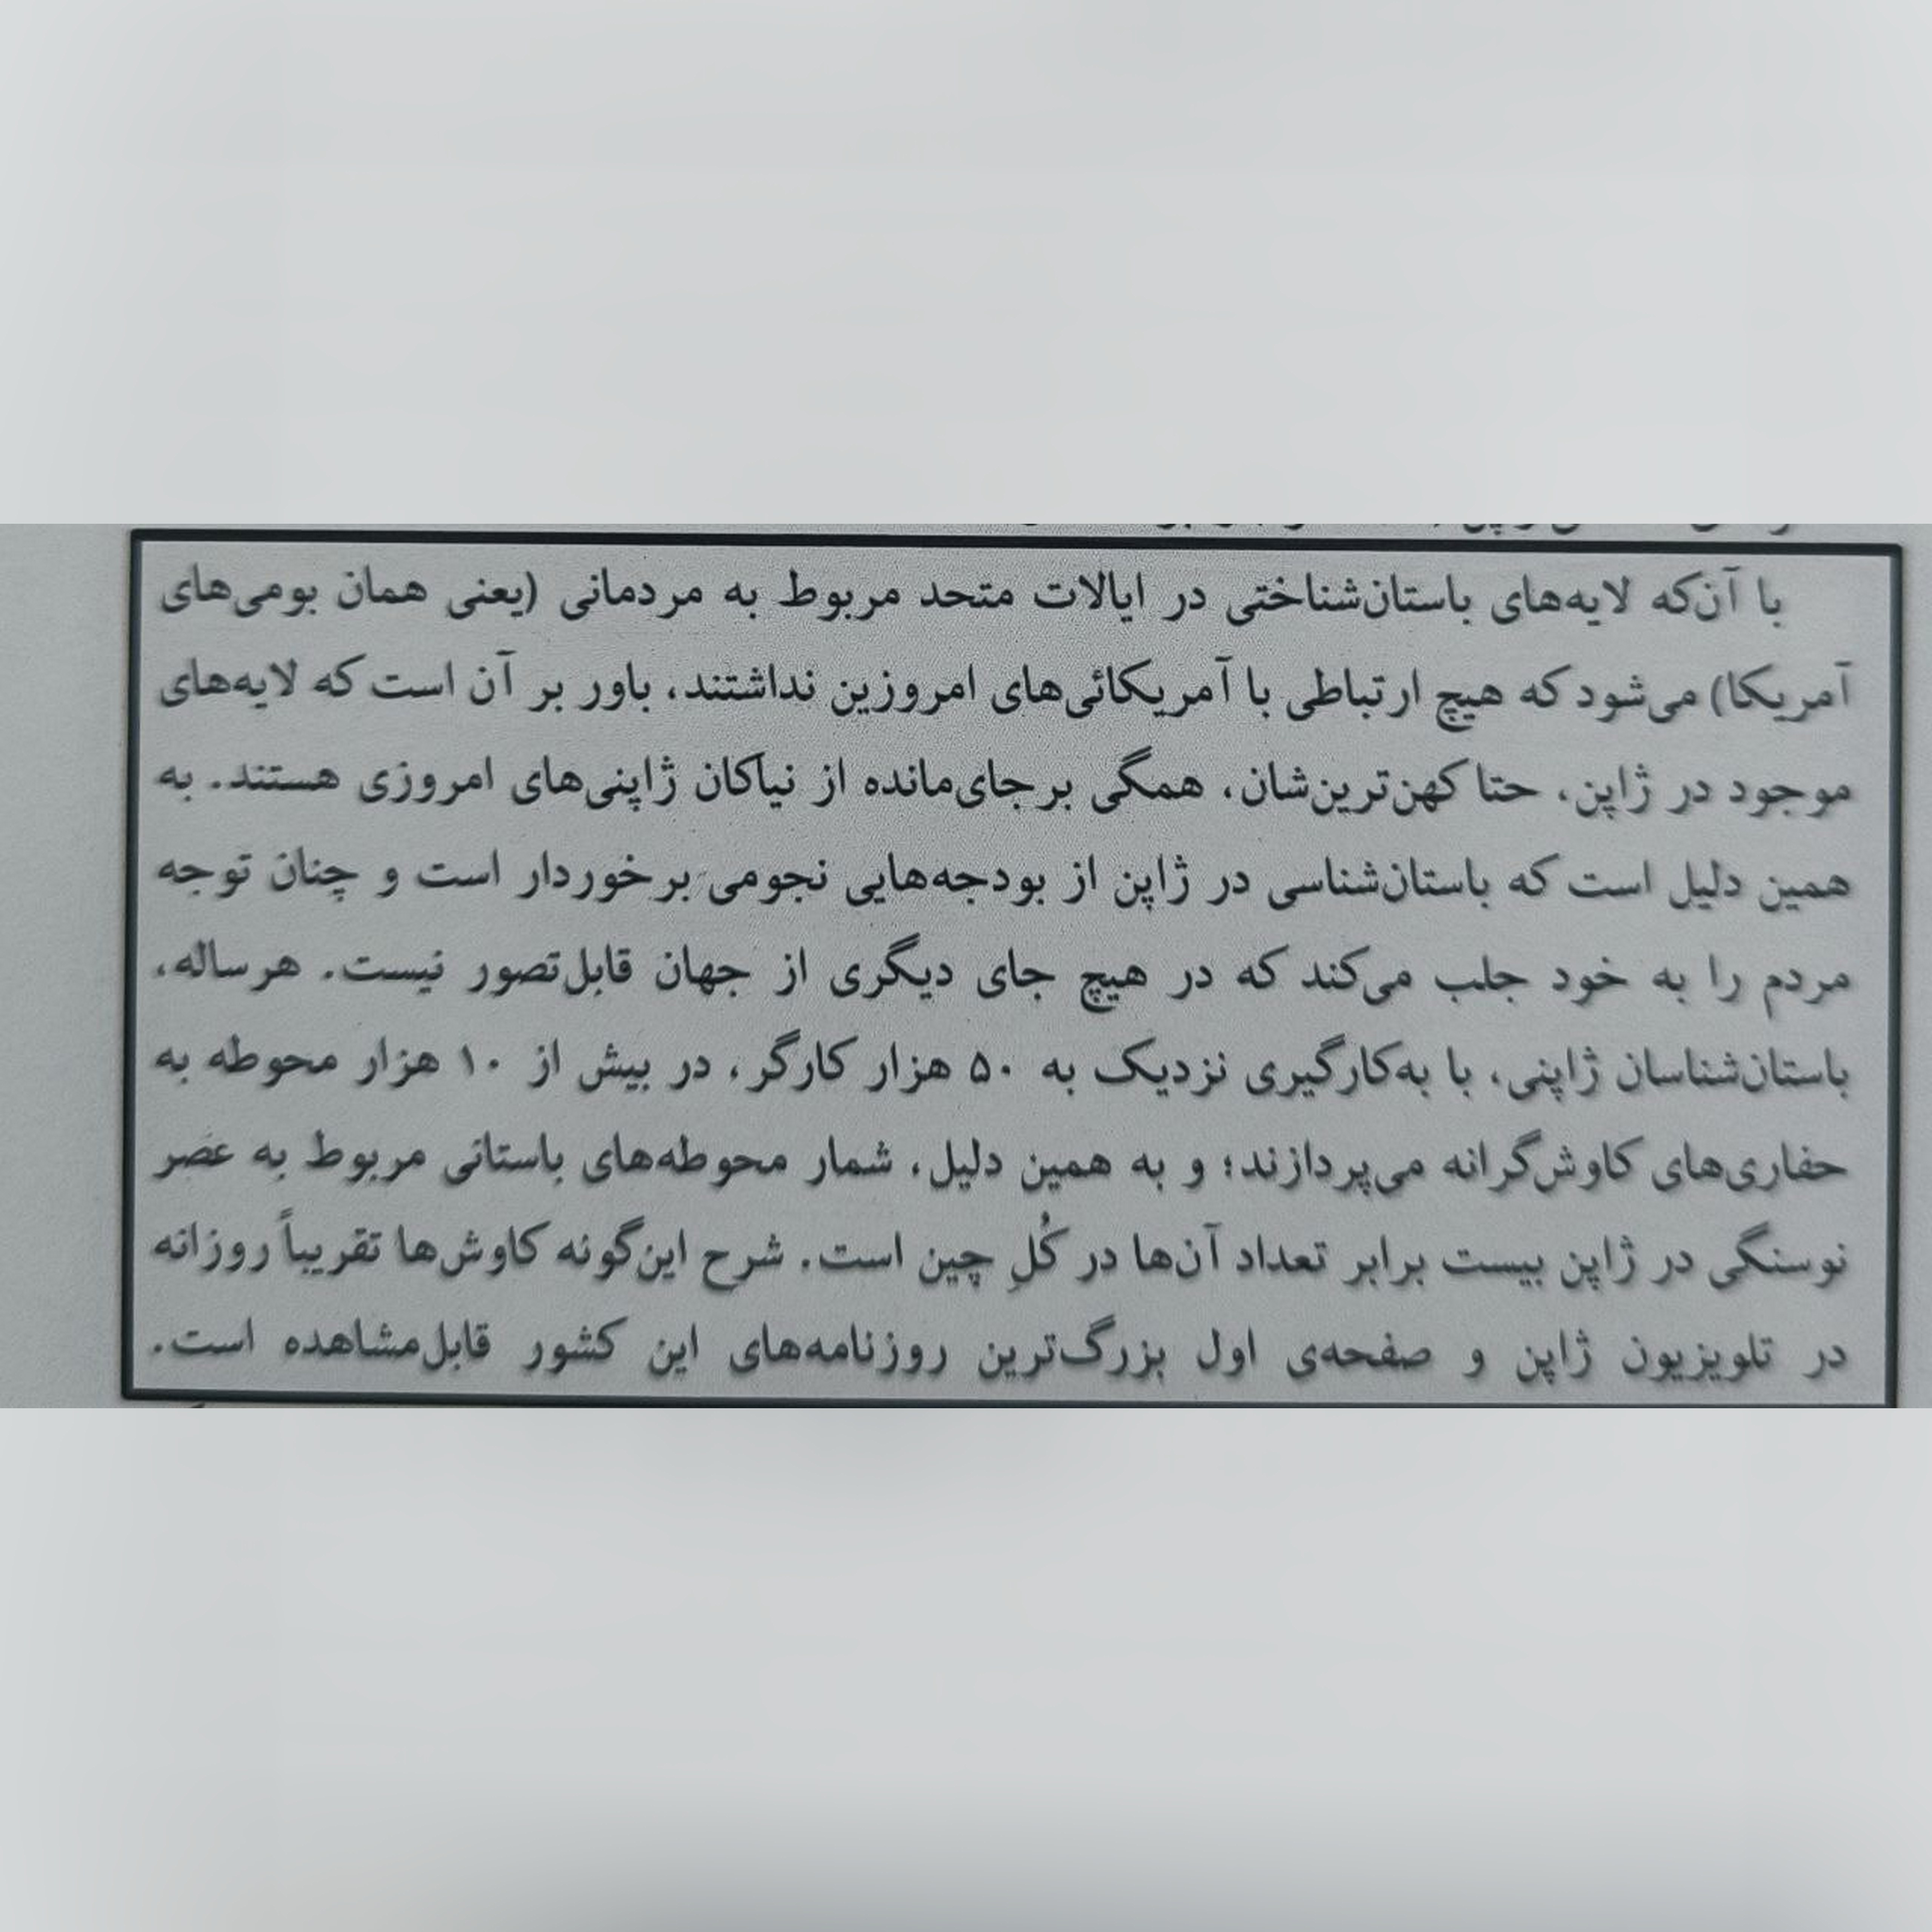 با آن‌که لایه‌های باستان‌شناختی در ایالات متحد مربوط به مردمانی (یعنی همان بومی‌های
آمریکا) می‌شود که هیچ ارتباطی با آمریکائی‌های امروزین نداشتند، باور بر آن است که لایه‌های
موجود در ژاپن، حتا کهن‌ترین‌شان، همگی برجای‌مانده از نیاکان ژاپنی‌های امروزی هستند. به
همین دلیل است که باستان‌شناسی در ژاپن از بودجه‌هایی نجومی برخوردار است و چنان توجه
مردم را به خود جلب می‌کند که در هیچ جای دیگری از جهان قابل‌تصور نیست. هرساله،
باستان‌شناسان ژاپنی، با به‌کارگیری نزدیک به ۵۰ هزار کارگر، در بیش از ۱۰ هزار محوطه به
حفاری‌های کاوش‌گرانه می‌پردازند؛ و به همین دلیل، شمار محوطه‌های باستانی مربوط به عصر
نوسنگی در ژاپن بیست برابر تعداد آن‌ها در کُلِ چین است. شرح این‌گونه کاوش‌ها تقریباً روزانه
در تلویزیون ژاپن و صفحه‌ی اول بزرگ‌ترین روزنامه‌های این کشور قابل‌مشاهده است.